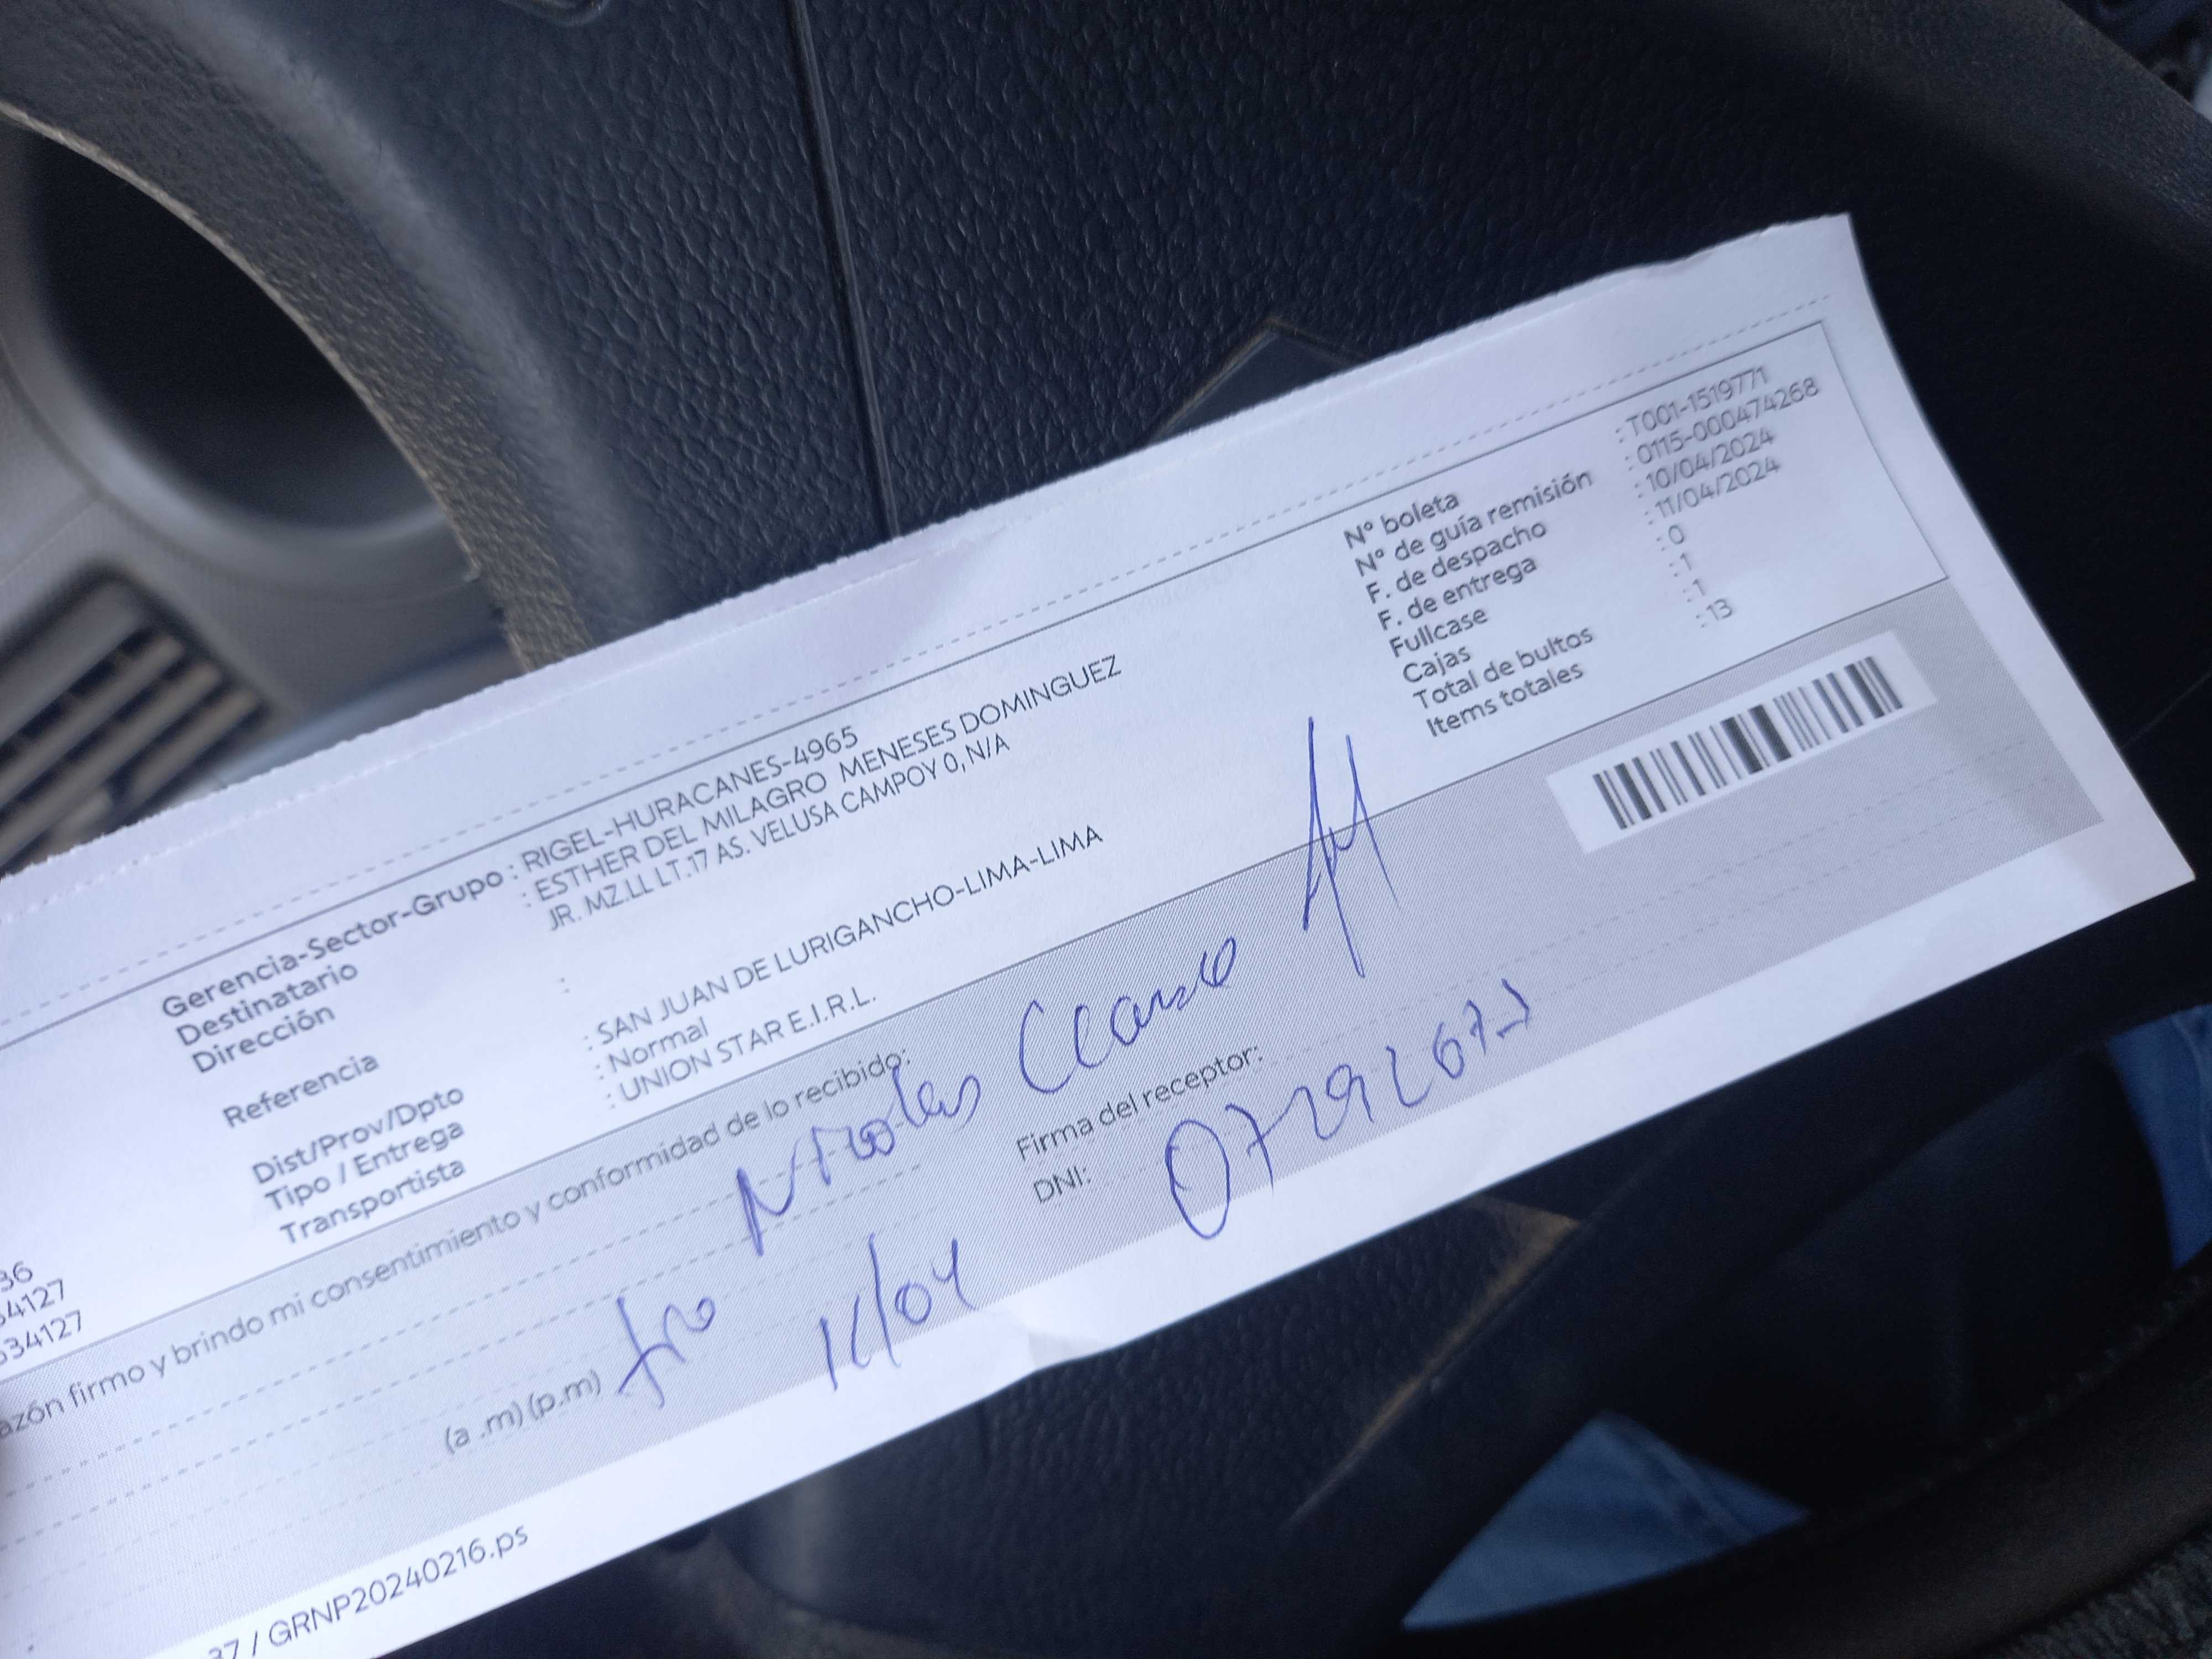 Gerencia-Sector-Grupo : RIGEL-HURACANES-4965
Destinatario : ESTHER DEL MILAGRO MENESES DOMINGUEZ
Dirección JR. MZ.LL LT.17 AS. VELUSA CAMPOY 0, N/A
Referencia :
Dist/Prov/Dpto : SAN JUAN DE LURIGANCHO-LIMA-LIMA
Tipo / Entrega : Normal
Transportista : UNION STAR E.I.R.L.
N° boleta : T001-1519771
N° de guía remisión : 0115-000474268
F. de despacho : 10/04/2024
F. de entrega : 11/04/2024
Fullcase : 0
Cajas : 1
Total de bultos : 1
Items totales : 13
36
34127
534127
azón firmo y brindo mi consentimiento y conformidad de lo recibido:
Nicolas
Firma del receptor:
DNI:
(a .m) (p.m)
11/04
37 / GRNP20240216.ps